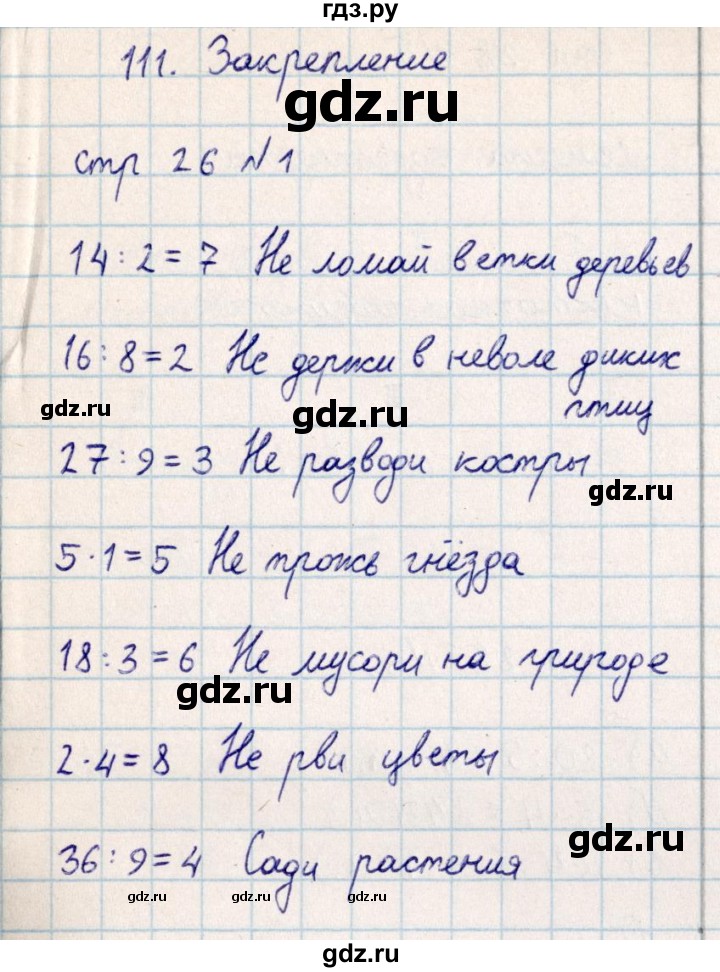 гдз.ру
111. Закрепление
gdz.ru
стр 26 №1
14:2=7 Не ломай ветки деревьев
16:8=2 Не держи в неволе диких
птиц
gdz.ru
gdz.ru
27:9=3 Не разводи костры
gdz.ru
5·1=5 Не трожь гнёзда
18:3=6 Не мусори на природе
gdz.ru
2·4=8 Не рви цветы
gdz.ru
36:9=4 Сади растения
gdz.ru gdz.ru gdz.ru
gdz.ru